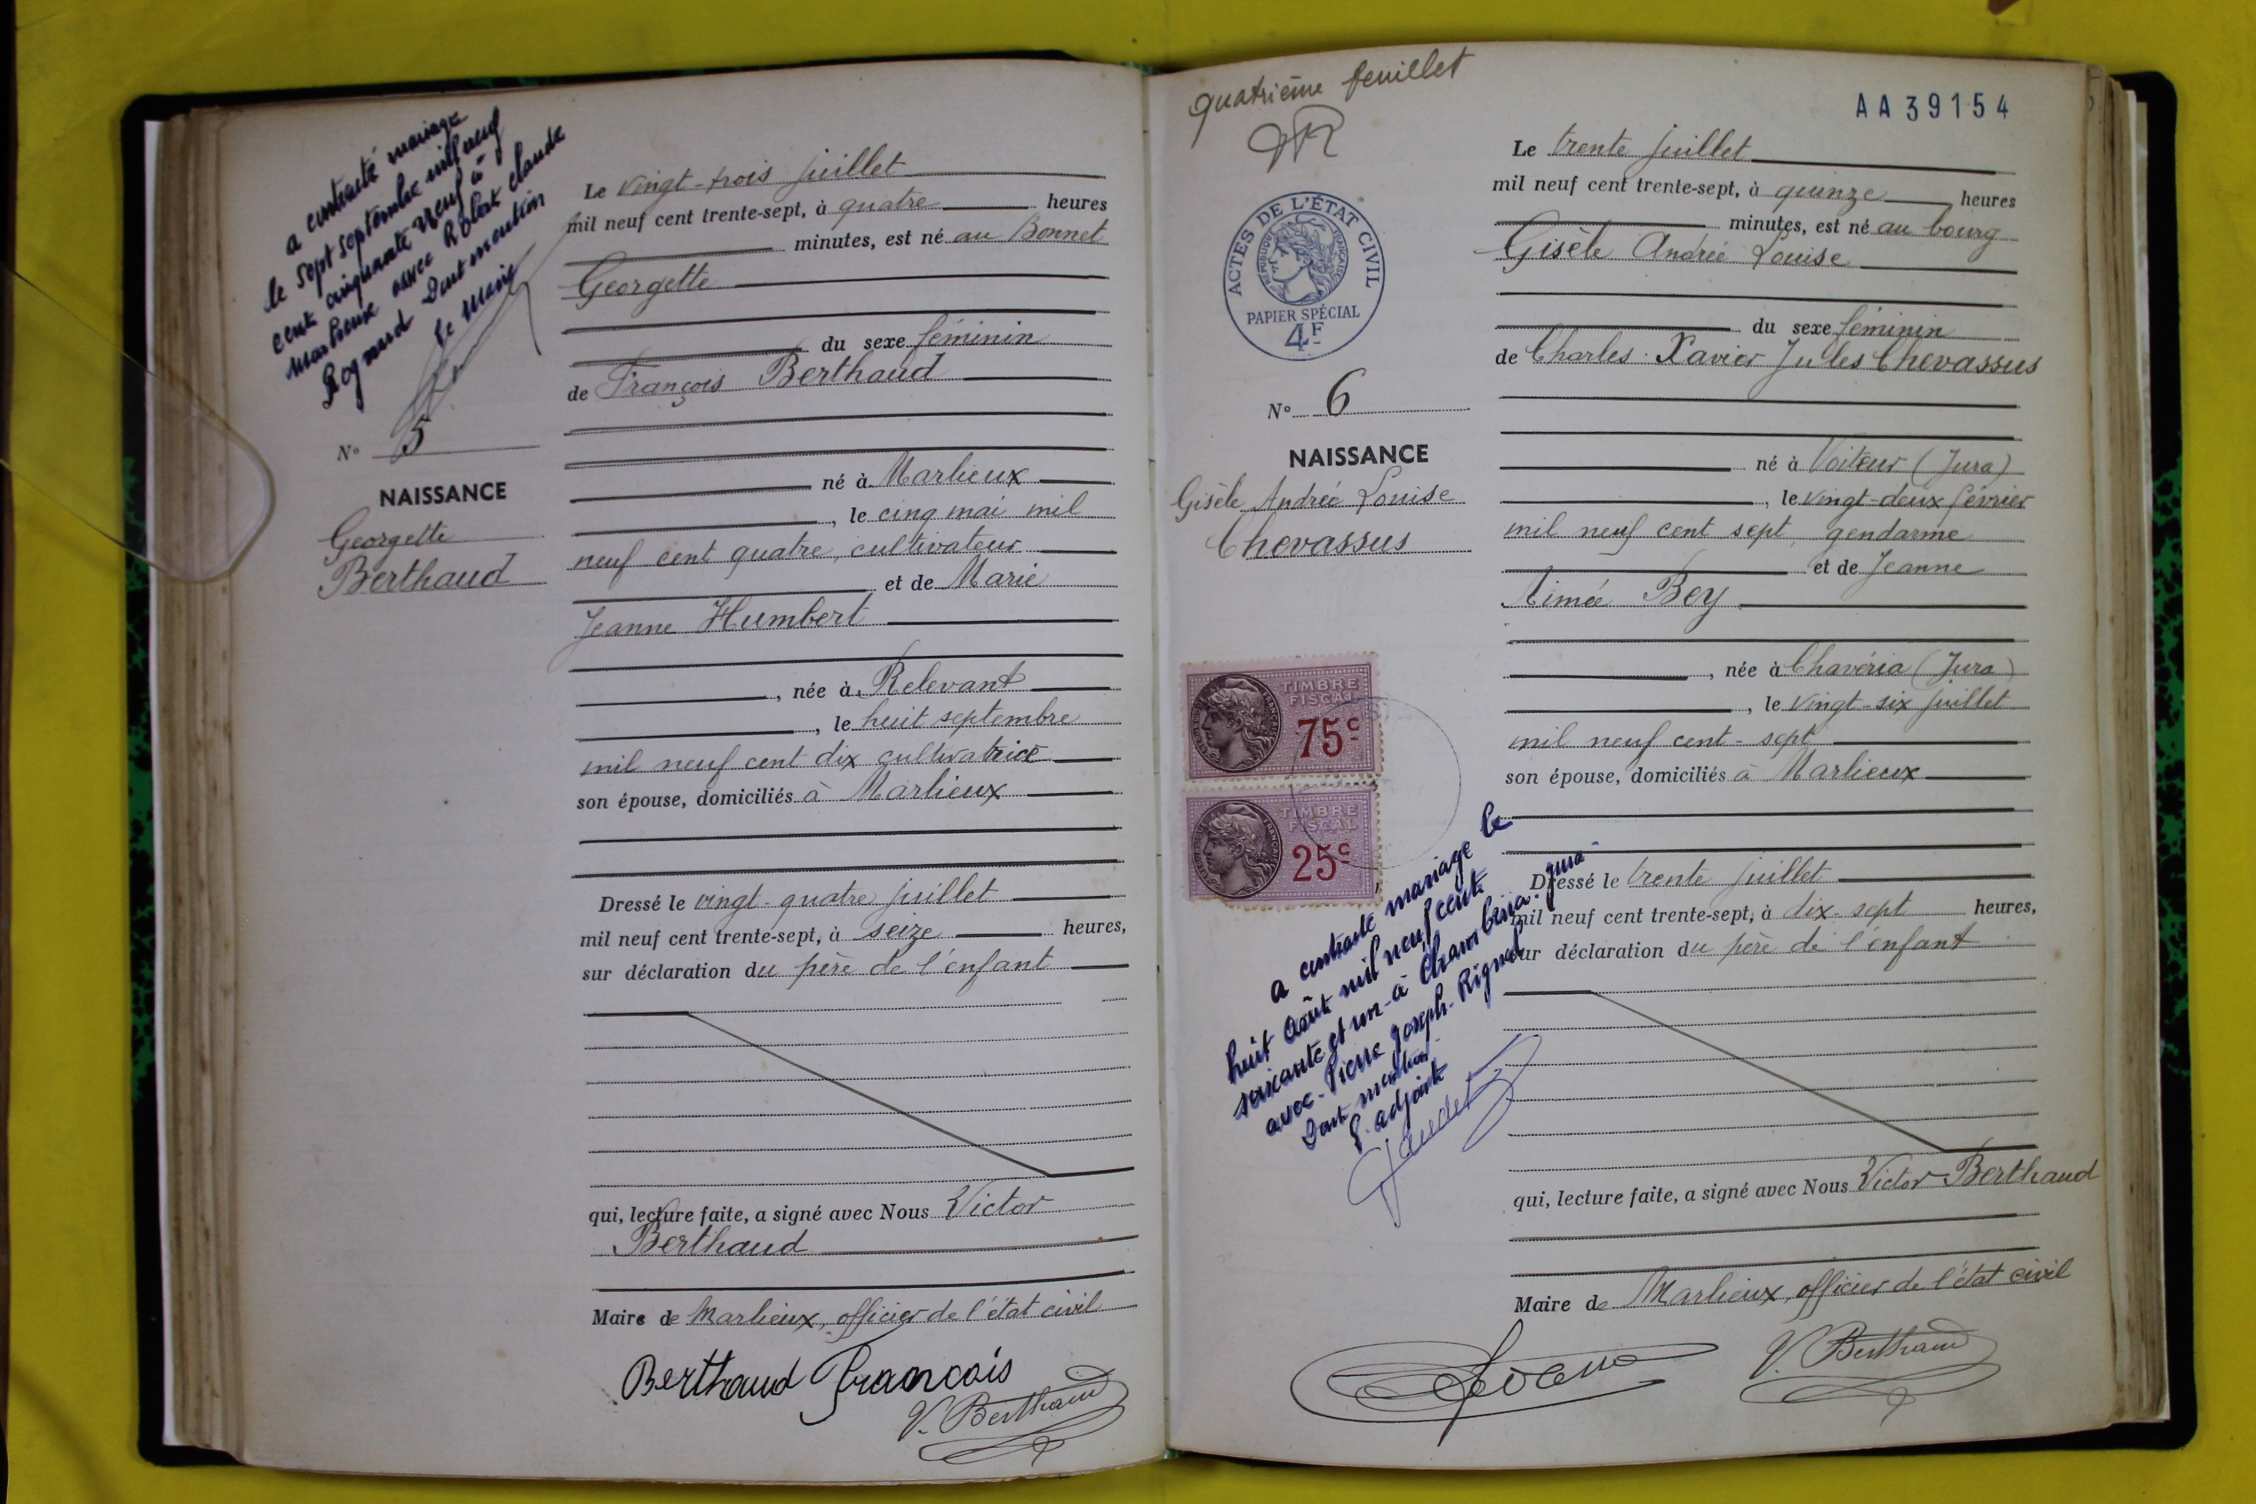 a contracté mariage
le sept septembre mil neuf
cent cinquante neuf à
Marlieux avec Robert Claude
Dont mention
le Maire
N° 5
NAISSANCE
Georgette
Berthaud
Le vingt-trois juillet
mil neuf cent trente-sept, à quatre heures
minutes, est né au Bonnet
Georgette
du sexe féminin
de François Berthaud
né à Marlieux
, le cinq mai mil
neuf cent quatre, cultivateur
et de Marie
Jeanne Humbert
, née à Relevant
, le huit septembre
mil neuf cent dix cultivatrice
son épouse, domiciliés à Marlieux
Dressé le vingt-quatre juillet
mil neuf cent trente-sept, à seize heures,
sur déclaration du père de l'enfant
qui, lecture faite, a signé avec Nous Victor
Berthaud
Maire de Marlieux, officier de l'état civil
Berthaud François
V. Berthaud
quatrième feuillet
AA39154
ACTES DE L'ÉTAT CIVIL
RÉPUBLIQUE FRANÇAISE
PAPIER SPÉCIAL
4F
N° 6
NAISSANCE
Gisèle Andrée Louise
Chevassus
TIMBRE
FISCAL
75c
TIMBRE
FISCAL
25c
a contracté mariage le
huit Août mil neuf cent
soixante et un à Chambéria-Jura-
avec Pierre Joseph Rignol
Dont mention
L'adjoint
Le trente juillet
mil neuf cent trente-sept, à quinze heures
minutes, est né au bourg
Gisèle Andrée Louise
du sexe féminin
de Charles Xavier Jules Chevassus
né à Voiteur (Jura)
, le vingt-deux février
mil neuf cent sept, gendarme
et de Jeanne
Aimée Bey
, née à Chavéria (Jura)
, le vingt-six juillet
mil neuf cent-sept
son épouse, domiciliés à Marlieux
Dressé le trente juillet
mil neuf cent trente-sept, à dix-sept heures,
sur déclaration du père de l'enfant
qui, lecture faite, a signé avec Nous Victor Berthaud
Maire de Marlieux, officier de l'état civil
V. Berthaud